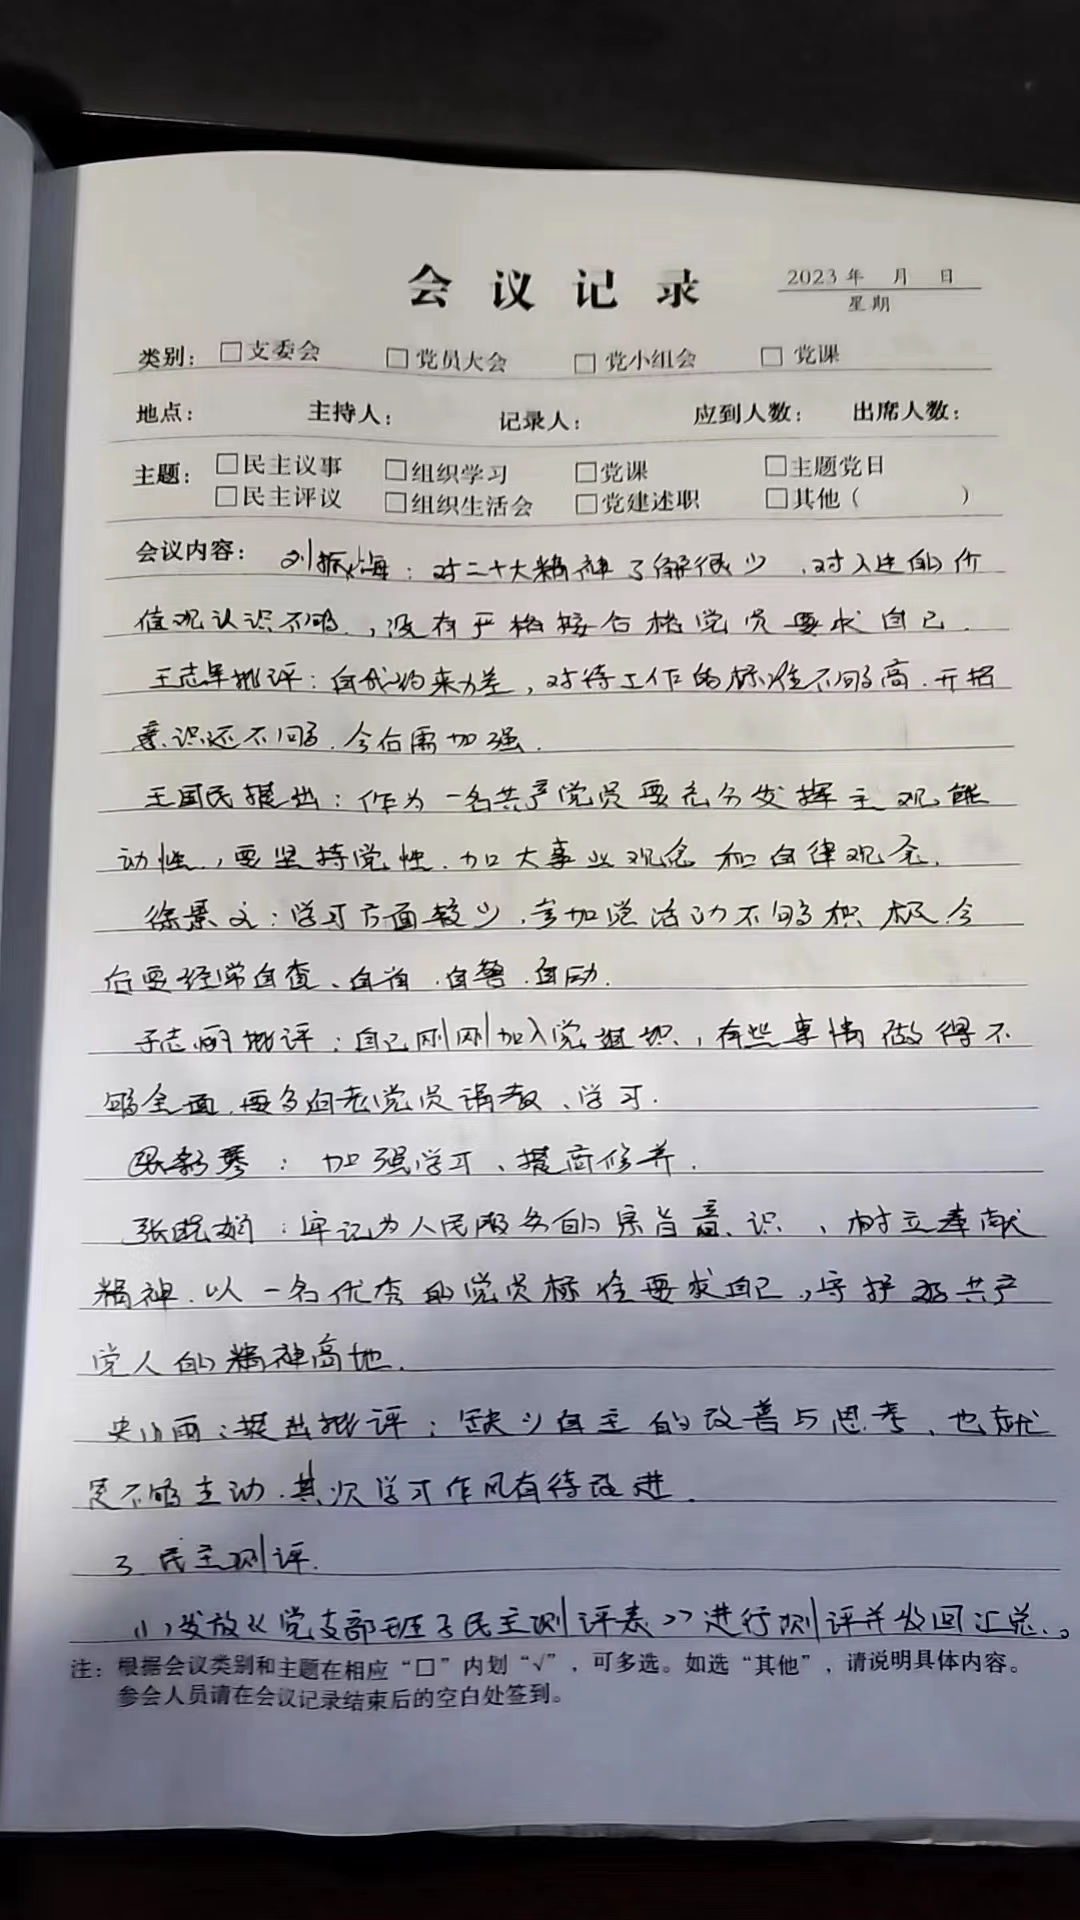 会议记录
2023 年 月 日
星期
类别： □支委会 □党员大会 □党小组会 □党课
地点： 主持人： 记录人： 应到人数： 出席人数：
主题： □民主议事 □组织学习 □党课 □主题党日
□民主评议 □组织生活会 □党建述职 □其他（ ）
会议内容： 刘振海：对二十大精神了解很少，对入达的价
值观认识不够，没有严格按合格党员要求自己．
王志军批评：自我约束力差，对待工作的标准不够高．开拓
意识还不够．今后需加强．
王国民提出：作为一名共产党员要充分发挥主观能
动性，要坚持党性．加大事业观念和自律观念．
徐景文：学习方面较少，参加党活动不够积极．今
后要经常自查、自省．自警．自励．
志丽批评：自己刚刚加入党组织，有些事情做得不
够全面．要多向老党员请教、学习．
新琴：加强学习、提高修养．
张晓娟：牢记为人民服务的宗旨意识、树立奉献
精神．以一名优秀的党员标准要求自己，守护好共产
党人的精神高地．
史小雨：提出批评：缺少自主的改善与思考、也就
是不够主动．其次学习作风有待改进．
3．民主测评．
（1）发放《党支部班子民主测评表》进行测评并收回汇总．。
注：根据会议类别和主题在相应“□”内划“√”，可多选。如选“其他”，请说明具体内容。
参会人员请在会议记录结束后的空白处签到。